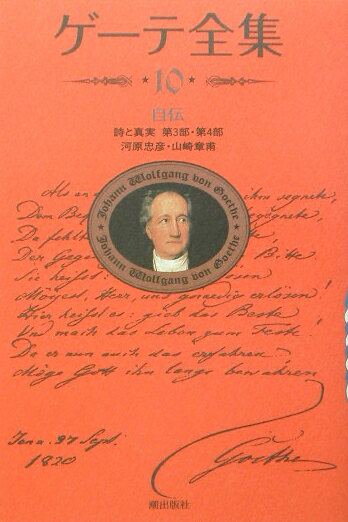 ゲーテ全集
10
自伝
詩と真実 第3部・第4部
河原忠彦・山崎章甫
Johann Wolfgang von Goethe
Johann Wolfgang von Goethe
Als an ihm segnete,
Dem
Da fehlt
Der Bitte
Sie heisset
Möget, Herr, uns gnaedig erlösen!
Hier heisst es: gieb das Beste
Und mach das Leben zum Feste!
Da er nun auch das erfahren
Möge Gott ihn lang bewahren
Jena. 27 Sept.
1820
Goethe
潮出版社